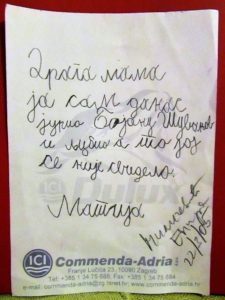 Драга мама
ја сам данас
јурио Бојану Шуваков
и љубио а то јој
се није свидело.
Матија
22/2/05
ICI Commenda-Adria d.o.o.
Franje Lučića 23, 10090 Zagreb
Tel: +385 1 34 75 688, Fax: +385 1 34 75 684
e-mail: commenda-adria@zg.htnet.hr, www.commenda-adria.hr